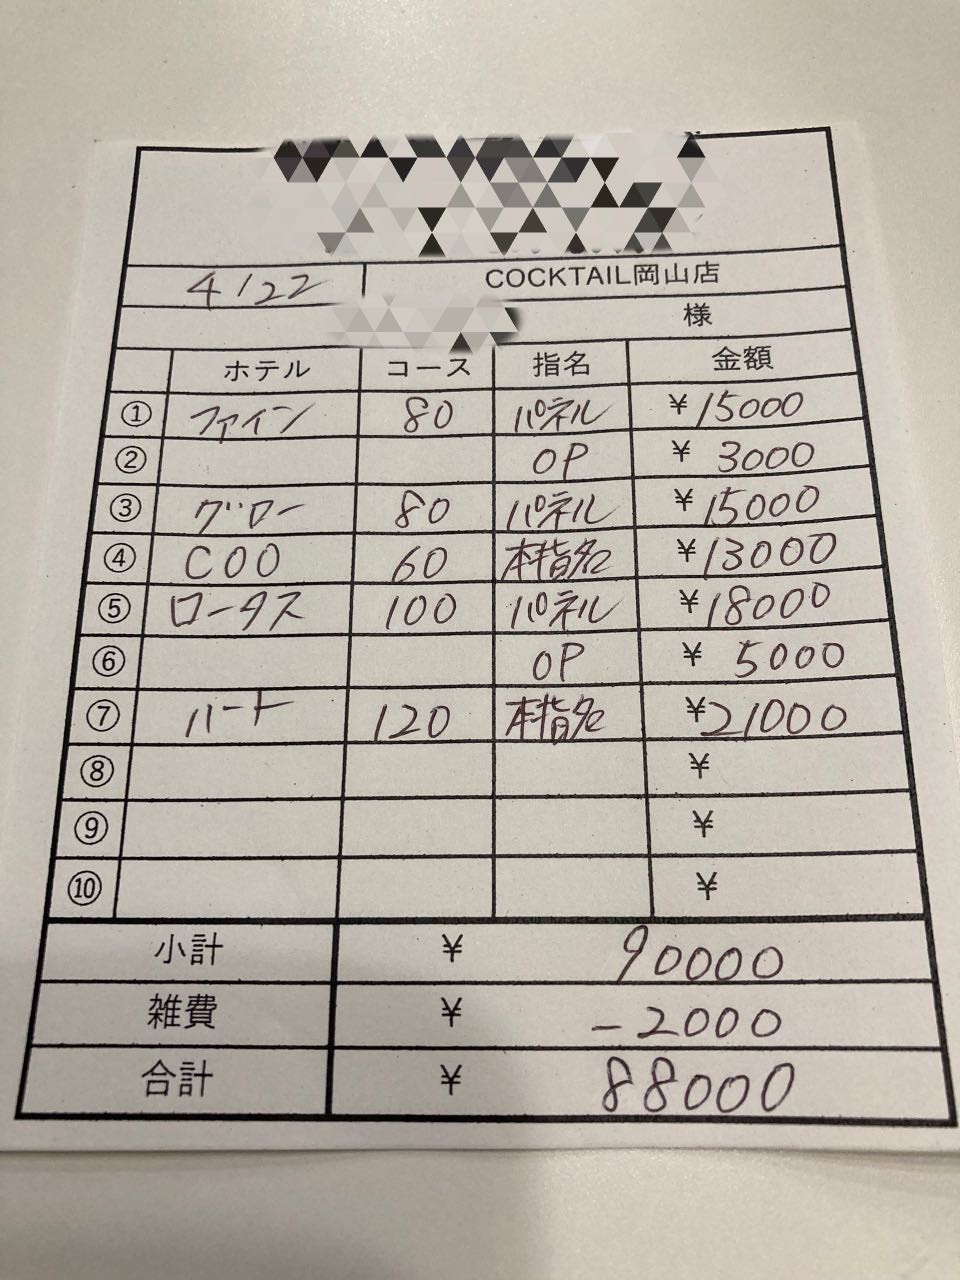 4/22 COCKTAIL岡山店
様
ホテル コース 指名 金額
① ファイン 80 パネル ¥15000
② OP ¥3000
③ グロー 80 パネル ¥15000
④ COO 60 本指名 ¥13000
⑤ ロータス 100 パネル ¥18000
⑥ OP ¥5000
⑦ ハート 120 本指名 ¥21000
⑧ ¥
⑨ ¥
⑩ ¥
小計 ¥ 90000
雑費 ¥ -2000
合計 ¥ 88000